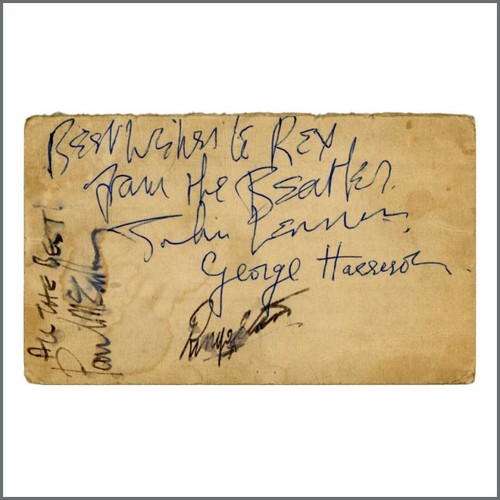 Best Wishes to Rex
from the Beatles.
John Lennon,
George Harrison.
Ringo Starr
All THE BEST!
Paul McCartney